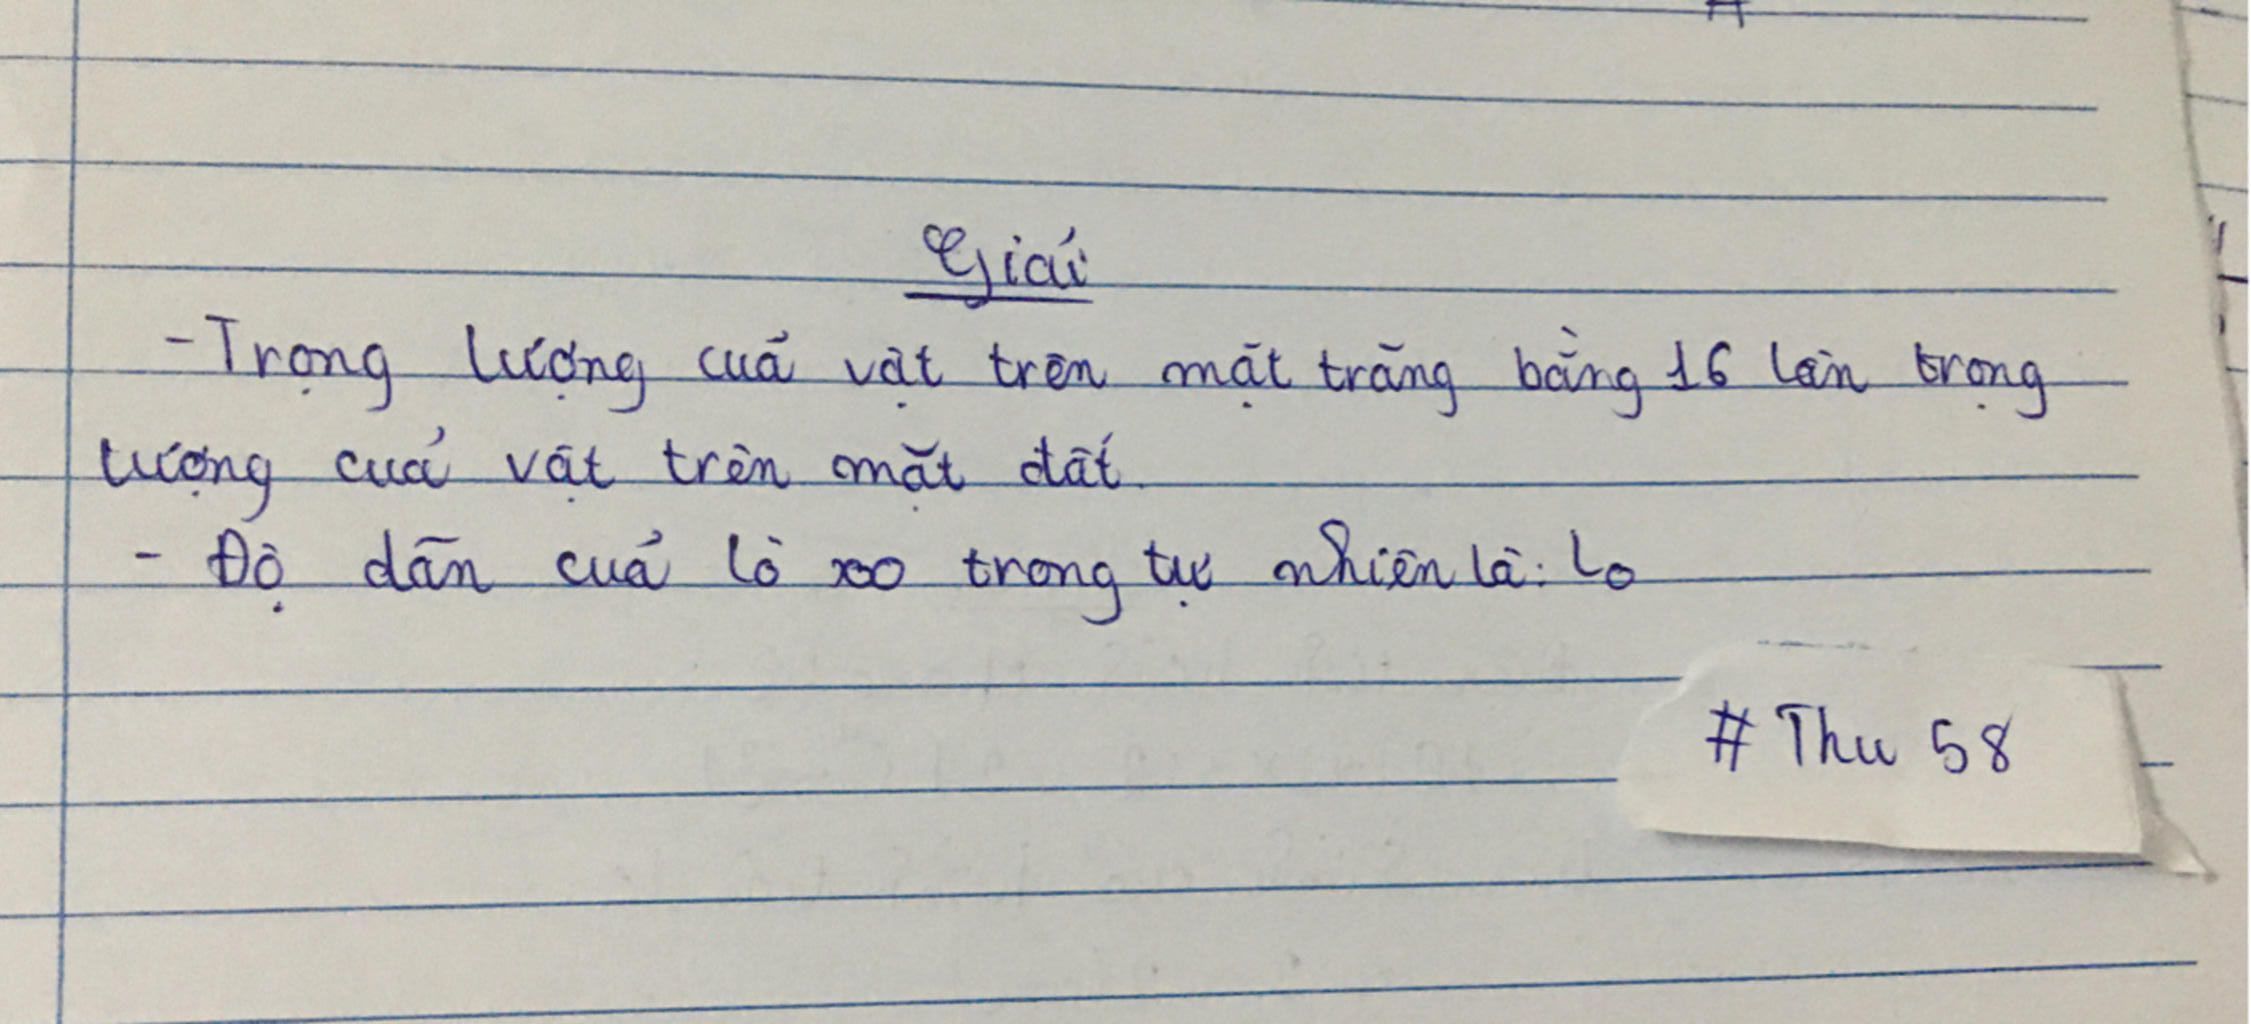 Giải
- Trọng lượng của vật trên mặt trăng bằng 16 lần trọng
lượng của vật trên mặt đất.
- Độ dãn của lò xo trong tự nhiên là: Lo
# Thu 58